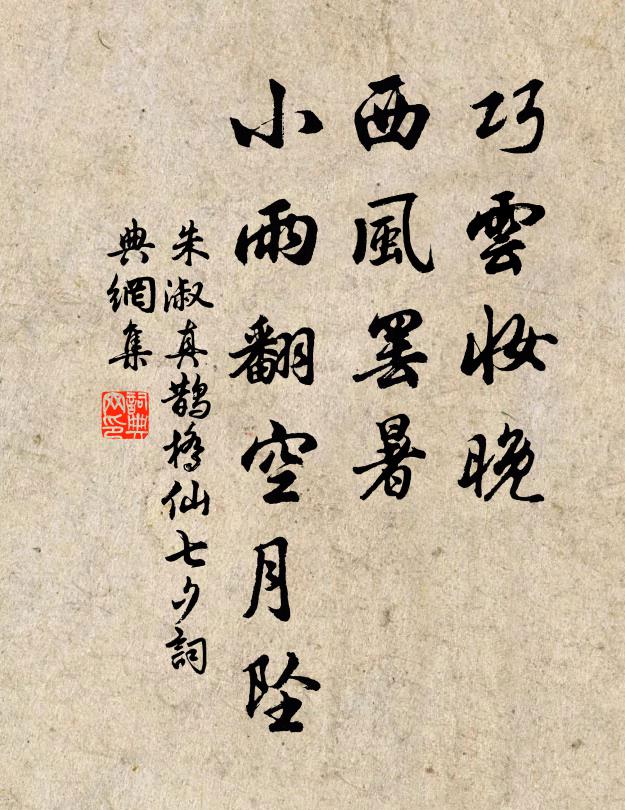 巧雲妝晚
西風罢暑
小雨翻空月坠
朱淑真鵲橋仙七夕詞
典網集
詞典网印